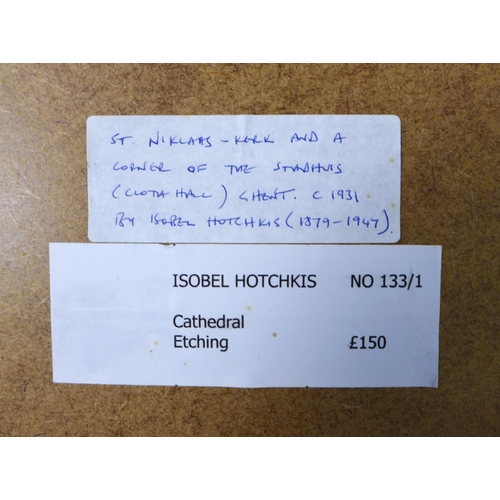 ST. NIKLAAS - KERK AND A
CORNER OF THE STADHUIS
(CLOTH HALL) GHENT. C 1931
BY ISOBEL HOTCHKIS (1879-1947).
ISOBEL HOTCHKIS NO 133/1
Cathedral
Etching £150